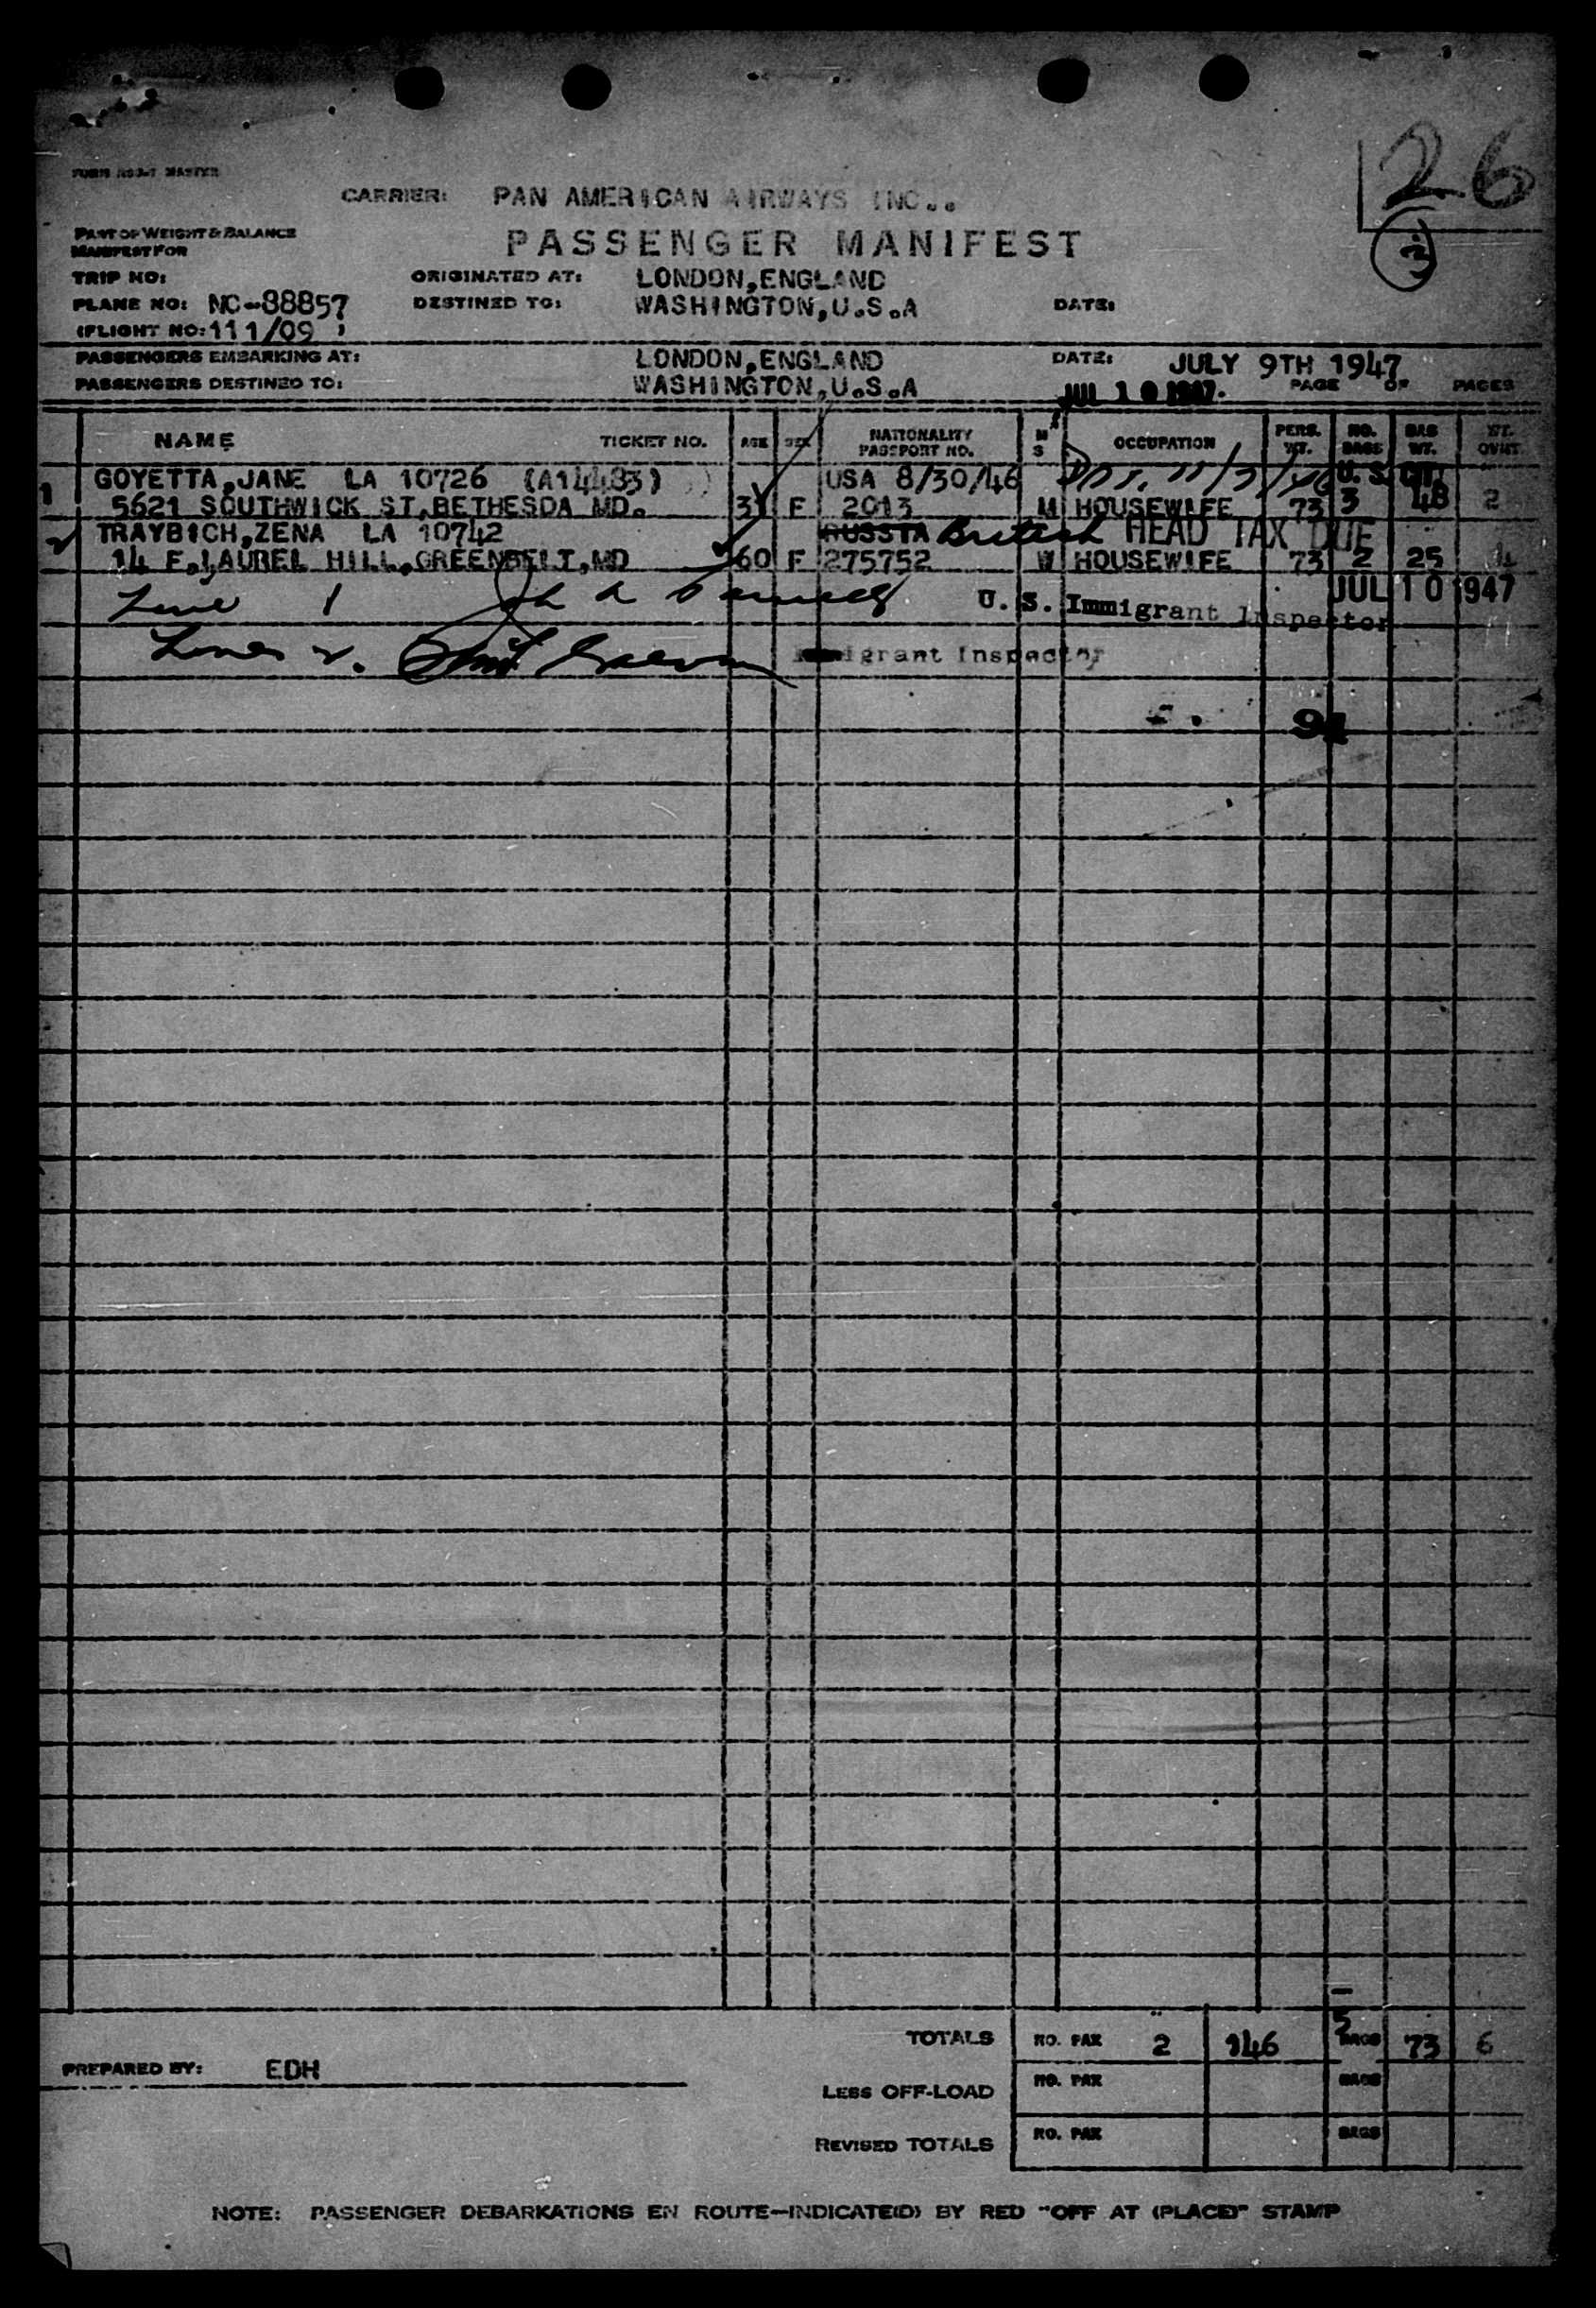 26
CARRIER: PAN AMERICAN AIRWAYS INC..
PART OF WEIGHT & BALANCE
MANIFEST FOR
PASSENGER MANIFEST
TRIP NO: ORIGINATED AT: LONDON,ENGLAND
PLANE NO: NC-88857 DESTINED TO: WASHINGTON,U.S.A DATE:
(FLIGHT NO:111/09 )
PASSENGERS EMBARKING AT: LONDON,ENGLAND DATE: JULY 9TH 1947
PASSENGERS DESTINED TO: WASHINGTON,U.S.A JUL 10 1947. PAGE OF PAGES
NAME TICKET NO. AGE SEX NATIONALITY PASSPORT NO. M S OCCUPATION PERS. WT. NO. BAGS BAG WT. WT. OVWT.
GOYETTA,JANE LA 10726 (A14483) USA 8/30/46 U.S. CIT.
1 5621 SOUTHWICK ST,BETHESDA MD. F 2013 M HOUSEWIFE 73 3 48 2
TRAYBICH,ZENA LA 10742 RUSSIA British HEAD TAX DUE
2 14 F,LAUREL HILL,GREENBELT,MD 60 F 275752 W HOUSEWIFE 73 2 25 4
JUL 10 1947
Line 1 U. S. Immigrant Inspector
Line 2. Immigrant Inspector
TOTALS NO. PAX 2 146 5 BAGS 73 6
PREPARED BY: EDH
LESS OFF-LOAD NO. PAX BAGS
REVISED TOTALS NO. PAX BAGS
NOTE: PASSENGER DEBARKATIONS EN ROUTE—INDICATE(D) BY RED "OFF AT (PLACE)" STAMP